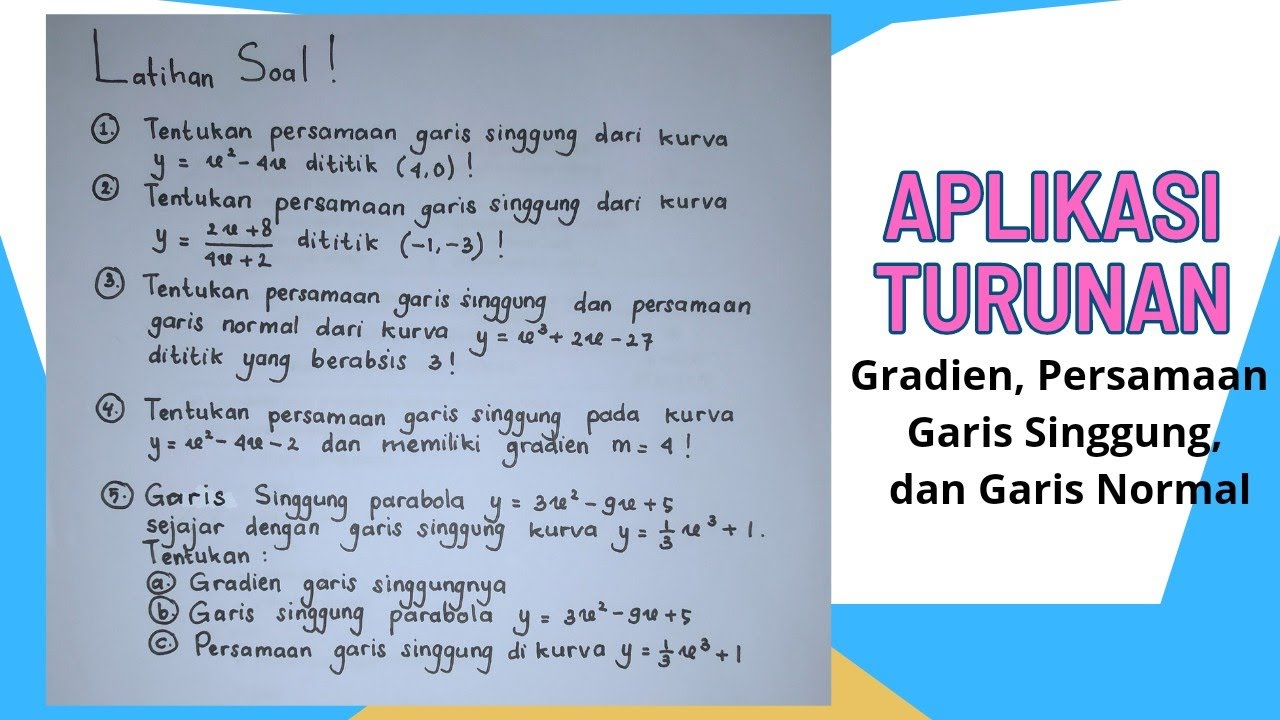 Latihan Soal !
1. Tentukan persamaan garis singgung dari kurva
y = x² - 4x dititik (4,0) !
2. Tentukan persamaan garis singgung dari kurva
y = (2x + 8)/(4x + 2) dititik (-1, -3) !
3. Tentukan persamaan garis singgung dan persamaan
garis normal dari kurva y = x³ + 2x - 27
dititik yang berabsis 3 !
4. Tentukan persamaan garis singgung pada kurva
y = x² - 4x - 2 dan memiliki gradien m = 4 !
5. Garis Singgung parabola y = 3x² - 9x + 5
sejajar dengan garis singgung kurva y = 1/3 x³ + 1.
Tentukan :
a. Gradien garis singgungnya
b. Garis singgung parabola y = 3x² - 9x + 5
c. Persamaan garis singgung di kurva y = 1/3 x³ + 1
APLIKASI
TURUNAN
Gradien, Persamaan
Garis Singgung,
dan Garis Normal